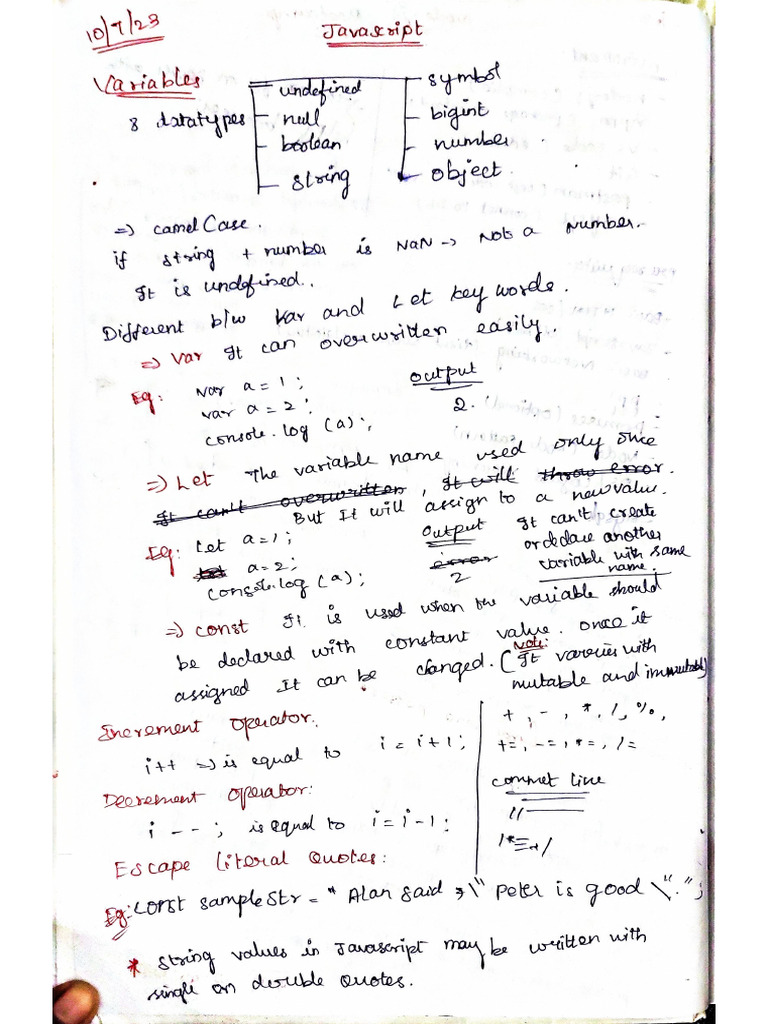 10/7/23
Javascript
Variables
8 datatypes
undefined
null
boolean
string
symbol
bigint
number
object
=> camel Case.
if string + number is NaN -> Nots a number.
It is undefined..
Different b/w Var and Let key words.
=> Var It can overwritten easily.
Eg: var a = 1;
var a = 2;
console.log (a);
output
2.
=> Let The variable name used only once
It can't overwritten, It will throw error.
But It will assign to a new value.
Eg: Let a=1;
let a=2;
console.log (a);
Output
error
2
It can't create
or declare another
variable with same
name.
=> const It is used when the variable should
be declared with constant value. once it
assigned It can be changed. (Note: It varries with
mutable and immutable)
Increment Operator:
i++ => is equal to i = i+1;
Decrement Operator:
i - - ; is equal to i = i-1;
+, -, *, /, %,
+=, -=, *=, /=
commet line
//
/* */
Escape literal Quotes:
Eg: const sampleStr = "Alan said, \" Peter is good \"." ;
* String values in Javascript may be written with
single on double Quotes.